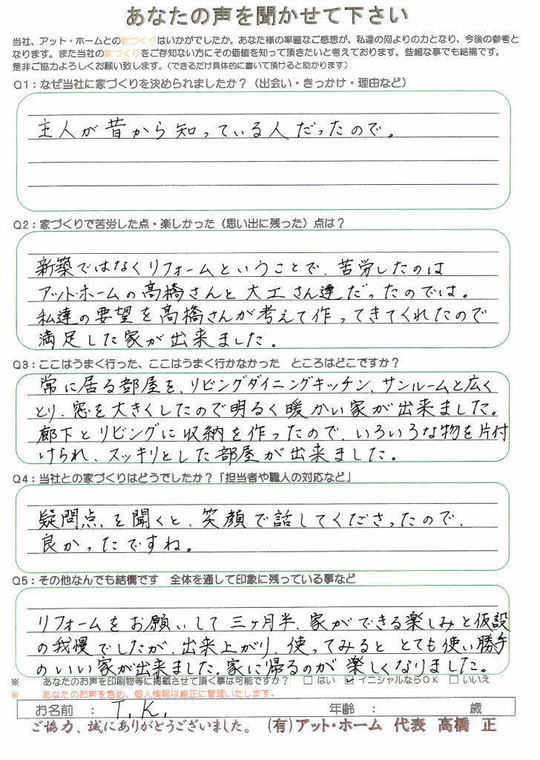 あなたの声を聞かせて下さい
当社、アット・ホームとの家づくりはいかがでしたか。あなた様の率直なご感想が、私達の何よりの力となり、今後の参考と
なります。また当社の家づくりをご存知ない方にその価値を知って頂きたいと考えております。些細な事でも結構です。
是非ご協力よろしくお願い致します。(できるだけ具体的に書いて頂けると助かります)
Q1:なぜ当社に家づくりを決められましたか?(出会い・きっかけ・理由など)
主人が昔から知っている人だったので。
Q2:家づくりで苦労した点・楽しかった(思い出に残った)点は?
新築ではなくリフォームということで、苦労したのは
アットホームの高橋さんと大工さん達だったのでは。
私達の要望を高橋さんが考えて作ってきてくれたので
満足した家が出来ました。
Q3:ここはうまく行った、ここはうまく行かなかった ところはどこですか?
常に居る部屋を、リビングダイニングキッチン、サンルームと広く
とり、窓を大きくしたので明るく暖かい家が出来ました。
廊下とリビングに収納を作ったので、いろいろな物を片付
けられ、スッキリとした部屋が出来ました。
Q4:当社との家づくりはどうでしたか?「担当者や職人の対応など」
疑問点を聞くと、笑顔で話してくださったので、
良かったですね。
Q5:その他なんでも結構です 全体を通して印象に残っている事など
リフォームをお願いして三ヶ月半、家ができる楽しみと仮設
の我慢でしたが、出来上がり、使ってみると とても使い勝手
のいい家が出来ました。家に帰るのが楽しくなりました。
※ あなたのお声を印刷物等に掲載させて頂く事は可能ですか? □はい ☑イニシャルならOK □いいえ
※ あなたのお声を含め、個人情報は厳正に管理いたします。
お名前: T.K. 年齢: 歳
ご協力、誠にありがとうございました。 (有)アット・ホーム 代表 高橋 正